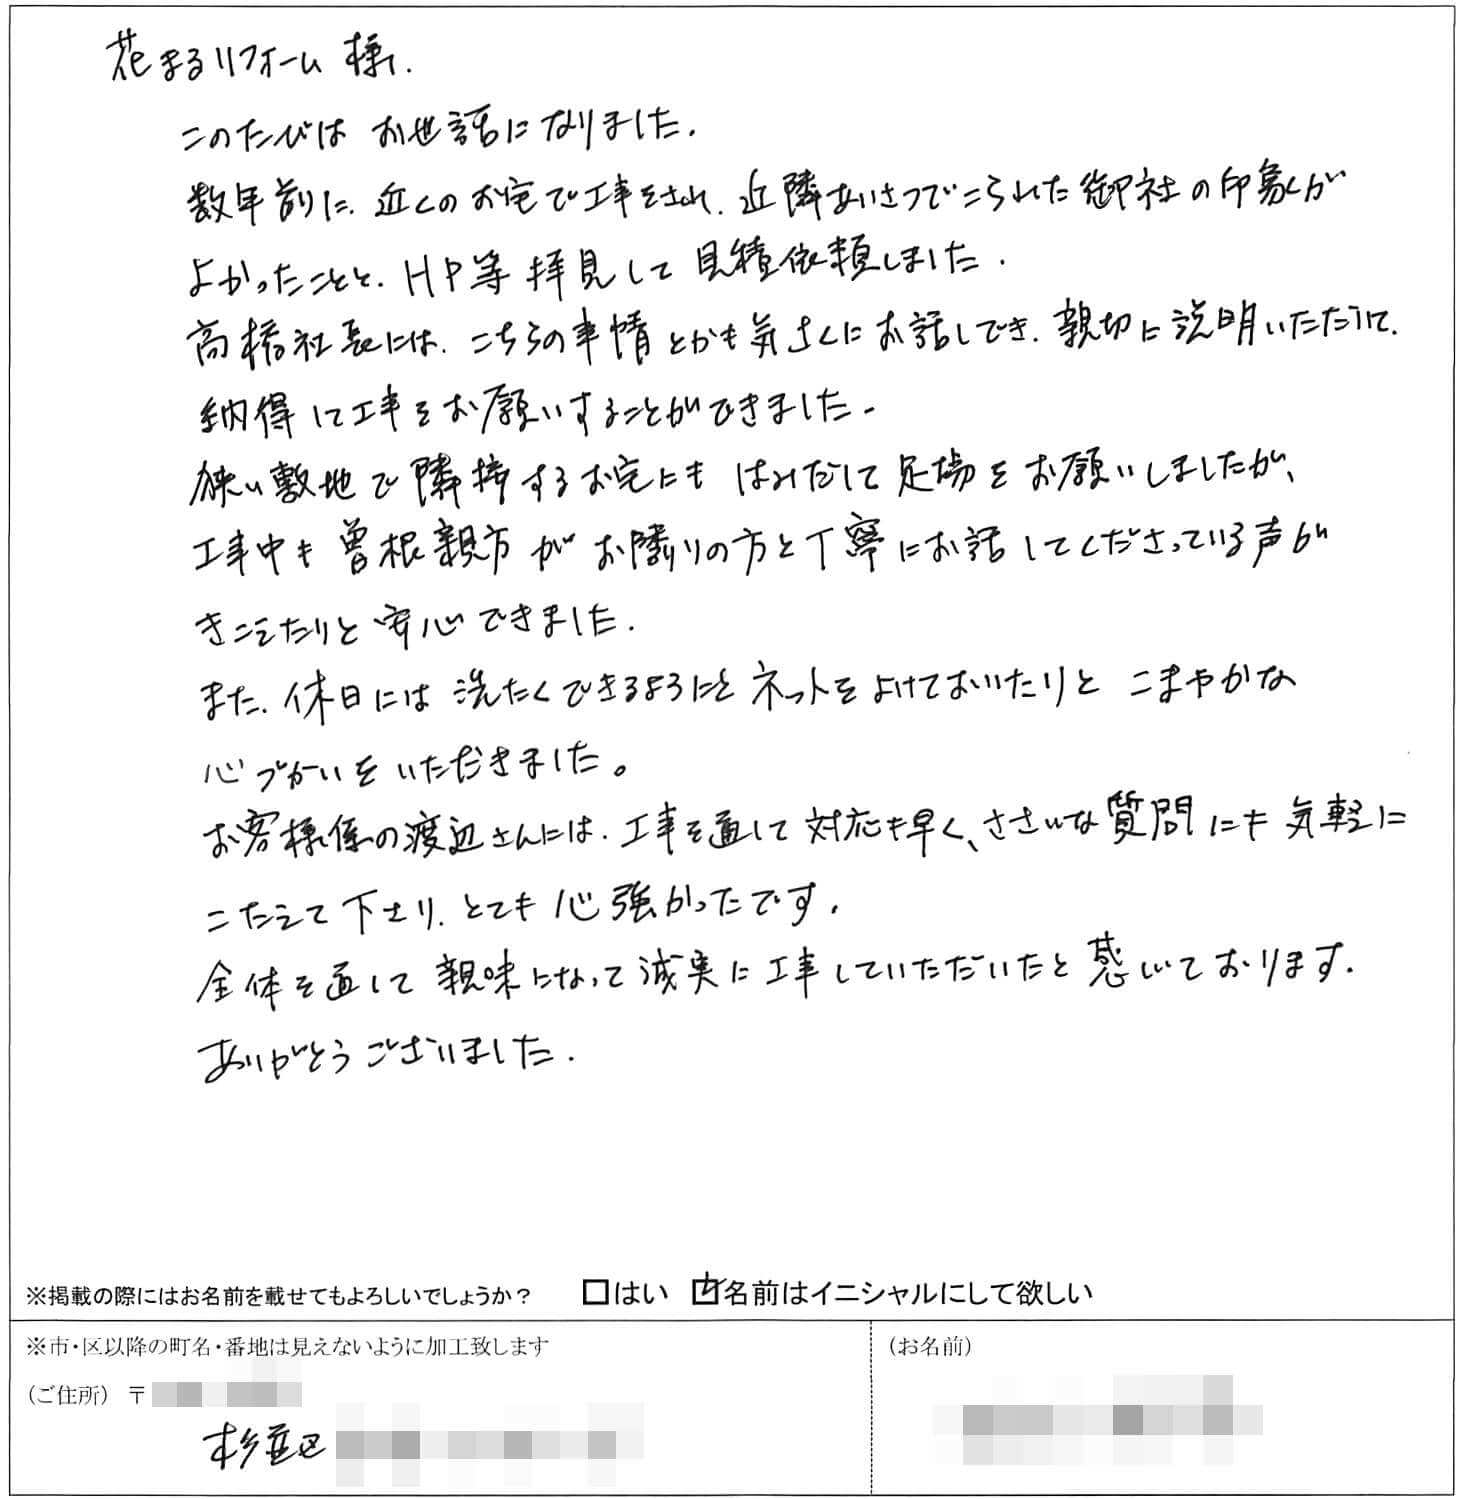 花まるリフォーム 様.
このたびは お世話になりました.
数年前に、近くのお宅で工事をされ、近隣あいさつでこられた御社の印象が
よかったことと、HP等 拝見して 見積依頼しました.
高橋社長には、こちらの事情とかも気さくにお話しでき、親切に説明いただいて、
納得して工事をお願いすることができました.
狭い敷地で隣接するお宅にも はみだして足場をお願いしましたが、
工事中も 曽根親方が お隣りの方と丁寧にお話してくださっている声が
きこえたりと 安心できました.
また、休日には 洗たくできるようにと ネットをよけておいたりと こまやかな
心づかいを いただきました。
お客様係の渡辺さんには、工事を通して 対応も早く、ささいな質問にも 気軽に
こたえて下さり、とても心強かったです.
全体を通して 親味になって 誠実に工事していただいたと感じております.
ありがとうございました.
※掲載の際にはお名前を載せてもよろしいでしょうか? □はい ☑名前はイニシャルにして欲しい
※市・区以降の町名・番地は見えないように加工致します
(ご住所) 〒
杉並区
(お名前)